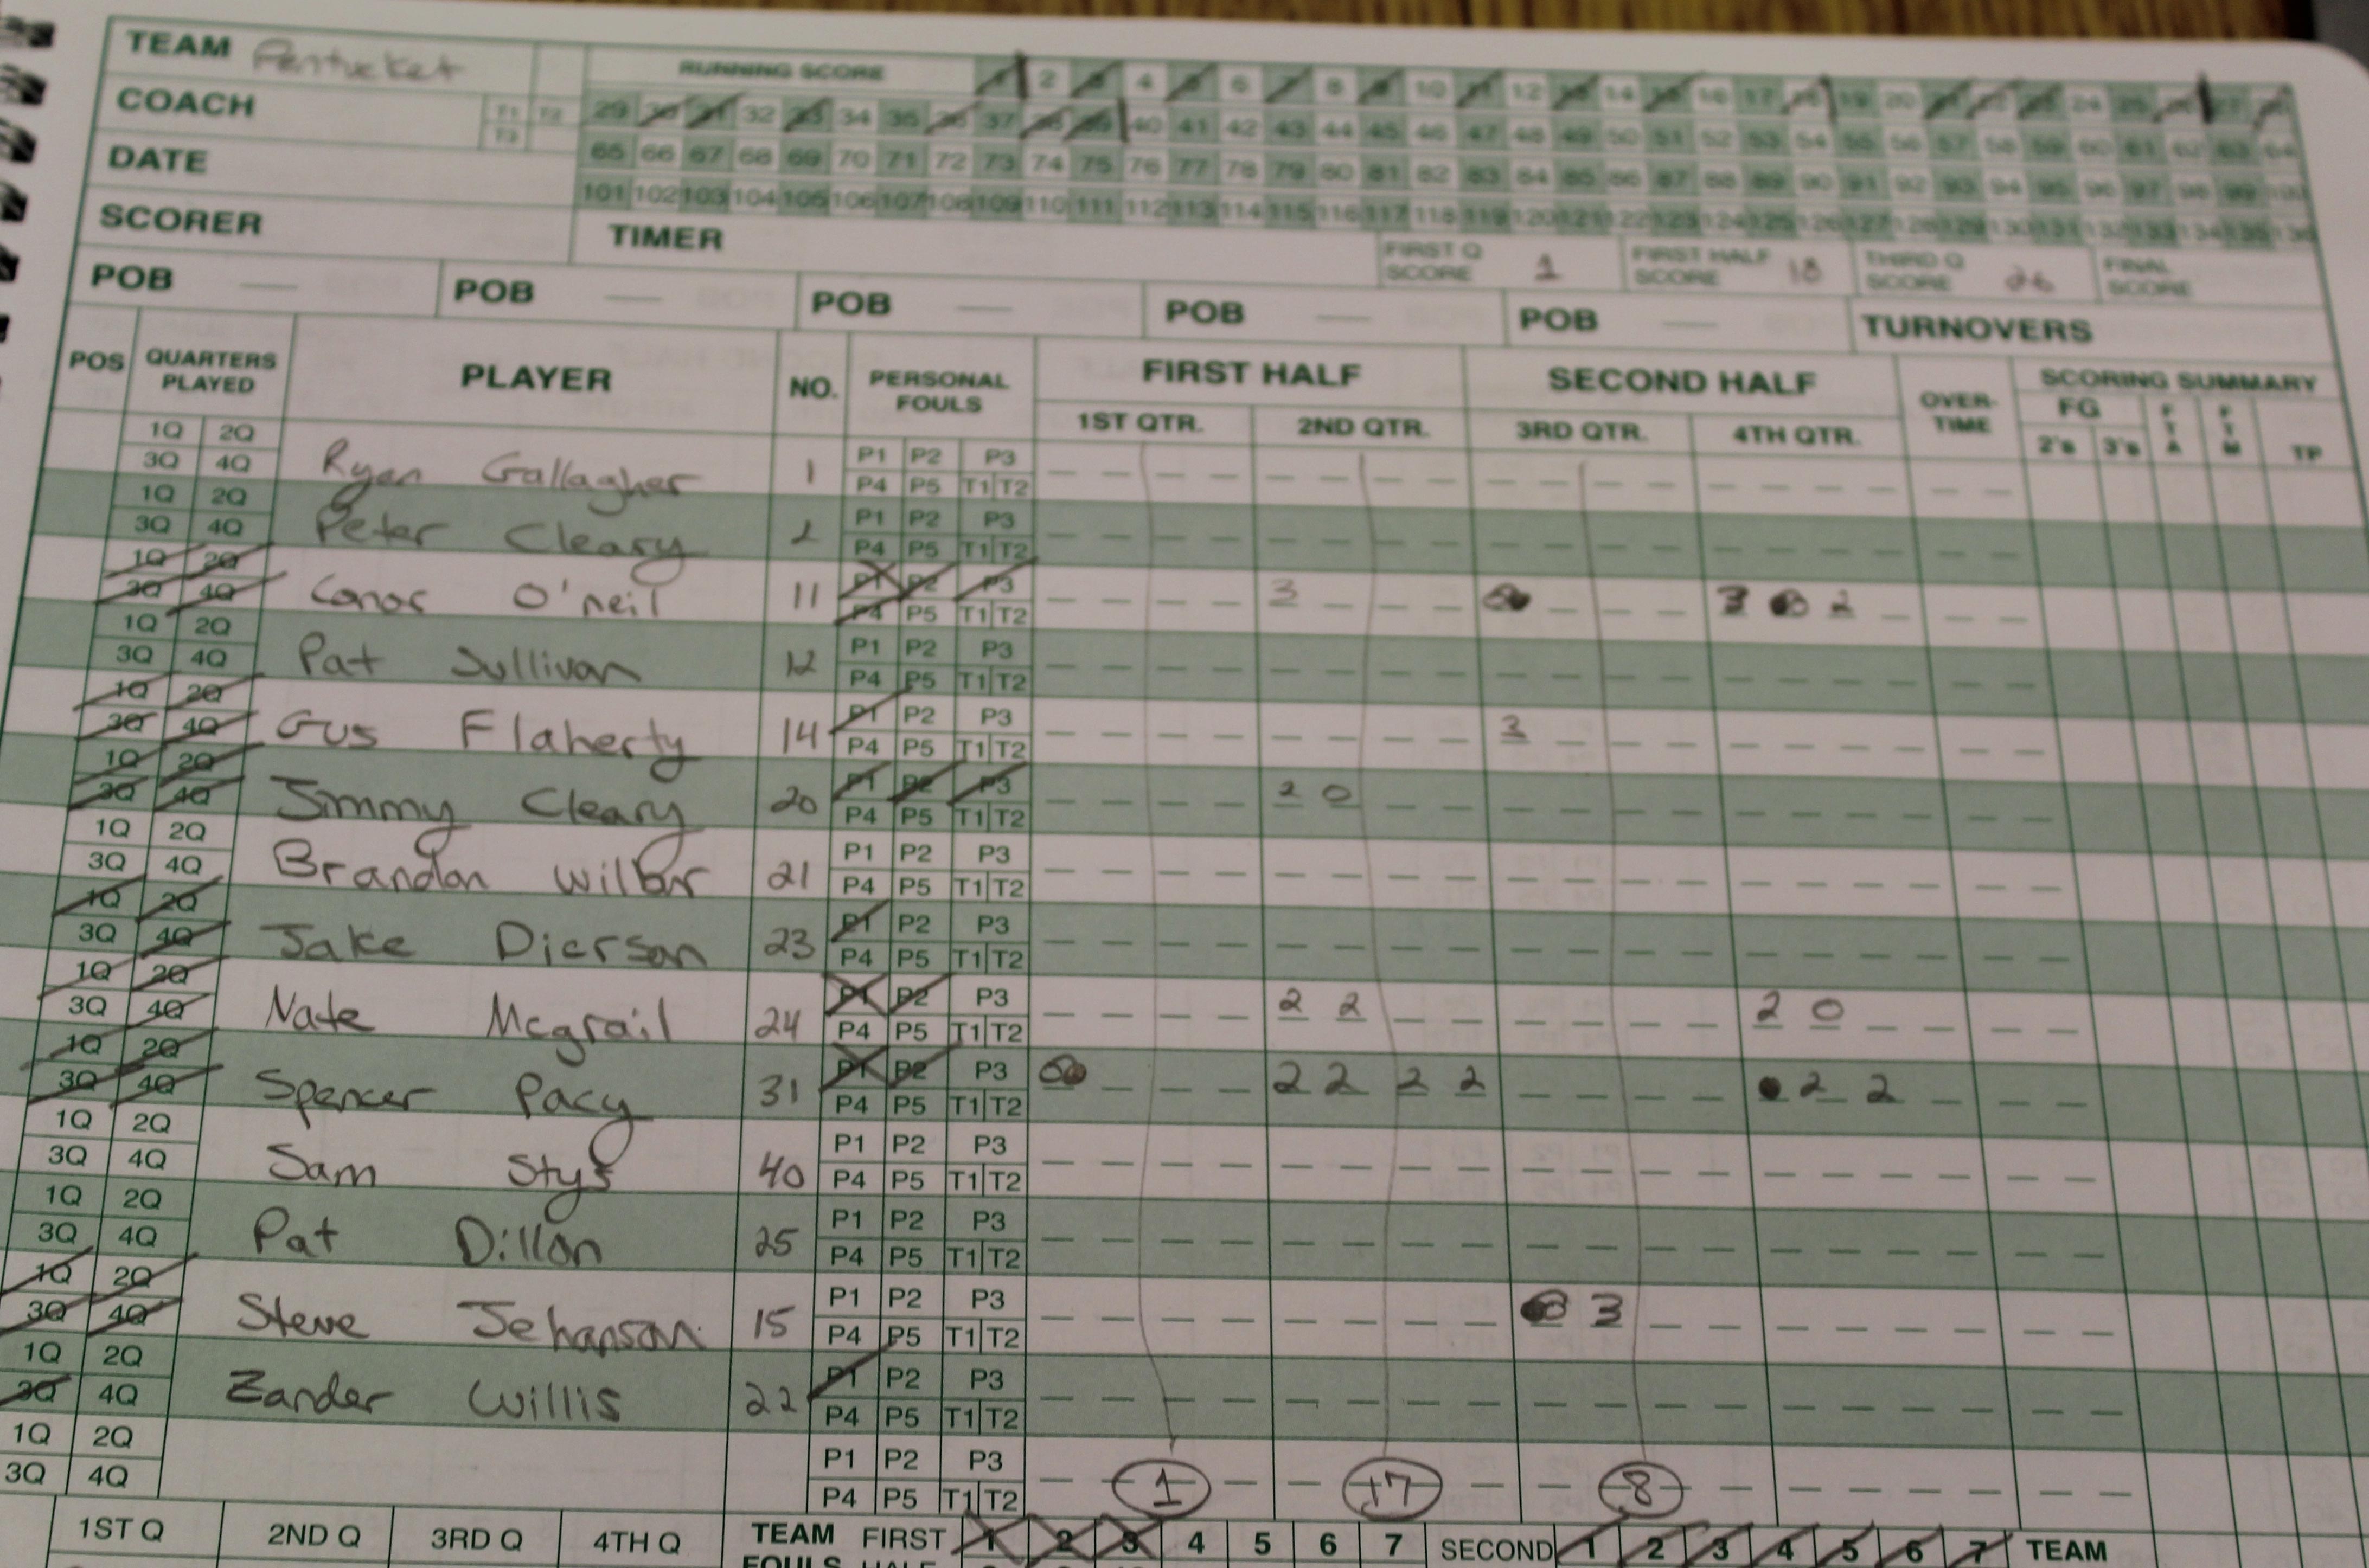 TEAM Pentucket
RUNNING SCORE 1 2 3 4 5 6 7 8 9 10 11 12 13 14 15 16 17 18 19 20 21 22 23 24 25 26 27 28
COACH T1 T2 T3
29 30 31 32 33 34 35 36 37 38 39 40 41 42 43 44 45 46 47 48 49 50 51 52 53 54 55 56 57 58 59 60 61 62 63 64
DATE
65 66 67 68 69 70 71 72 73 74 75 76 77 78 79 80 81 82 83 84 85 86 87 88 89 90 91 92 93 94 95 96 97 98 99 100
101 102 103 104 105 106 107 108 109 110 111 112 113 114 115 116 117 118 119 120 121 122 123 124 125 126 127 128 129 130 131 132 133 134 135 136
SCORER TIMER FIRST Q SCORE 1 FIRST HALF SCORE 18 THIRD Q SCORE 26 FINAL SCORE
POB — POB — POB — POB — POB — TURNOVERS
POS QUARTERS PLAYED PLAYER NO. PERSONAL FOULS FIRST HALF SECOND HALF OVER-TIME SCORING SUMMARY
1ST QTR. 2ND QTR. 3RD QTR. 4TH QTR. FG 2's 3's FTA FTM TP
1Q 2Q P1 P2 P3
3Q 4Q Ryan Gallagher 1 P4 P5 T1 T2
1Q 2Q P1 P2 P3
3Q 4Q Peter Cleary 2 P4 P5 T1 T2
1Q 2Q P1 P2 P3
3Q 4Q Conor O'neil 11 P4 P5 T1 T2 3 3 2
1Q 2Q P1 P2 P3
3Q 4Q Pat Sullivan 12 P4 P5 T1 T2
1Q 2Q P1 P2 P3
3Q 4Q Gus Flaherty 14 P4 P5 T1 T2 3
1Q 2Q P1 P2 P3
3Q 4Q Jimmy Cleary 20 P4 P5 T1 T2 2 0
1Q 2Q P1 P2 P3
3Q 4Q Brandon Wilbur 21 P4 P5 T1 T2
1Q 2Q P1 P2 P3
3Q 4Q Jake Dierson 23 P4 P5 T1 T2
1Q 2Q P1 P2 P3
3Q 4Q Nate Mcgrail 24 P4 P5 T1 T2 2 2 2 0
1Q 2Q P1 P2 P3
3Q 4Q Spencer Pacy 31 P4 P5 T1 T2 2 2 2 2 2 2
1Q 2Q P1 P2 P3
3Q 4Q Sam Stys 40 P4 P5 T1 T2
1Q 2Q P1 P2 P3
3Q 4Q Pat Dillon 25 P4 P5 T1 T2
1Q 2Q P1 P2 P3
3Q 4Q Steve Jehanson 15 P4 P5 T1 T2 3
1Q 2Q P1 P2 P3
3Q 4Q Zander Willis 22 P4 P5 T1 T2
1Q 2Q P1 P2 P3
3Q 4Q P4 P5 T1 T2 1 17 8
1ST Q 2ND Q 3RD Q 4TH Q TEAM FOULS FIRST HALF 1 2 3 4 5 6 7 SECOND 1 2 3 4 5 6 7 TEAM